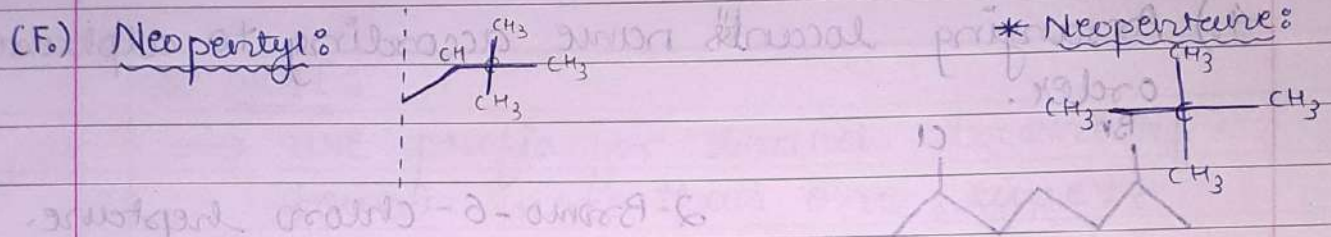 (F.) Neopentyl:
CH3
CH
CH3
CH3
* Neopentane:
CH3
CH3
C
CH3
CH3